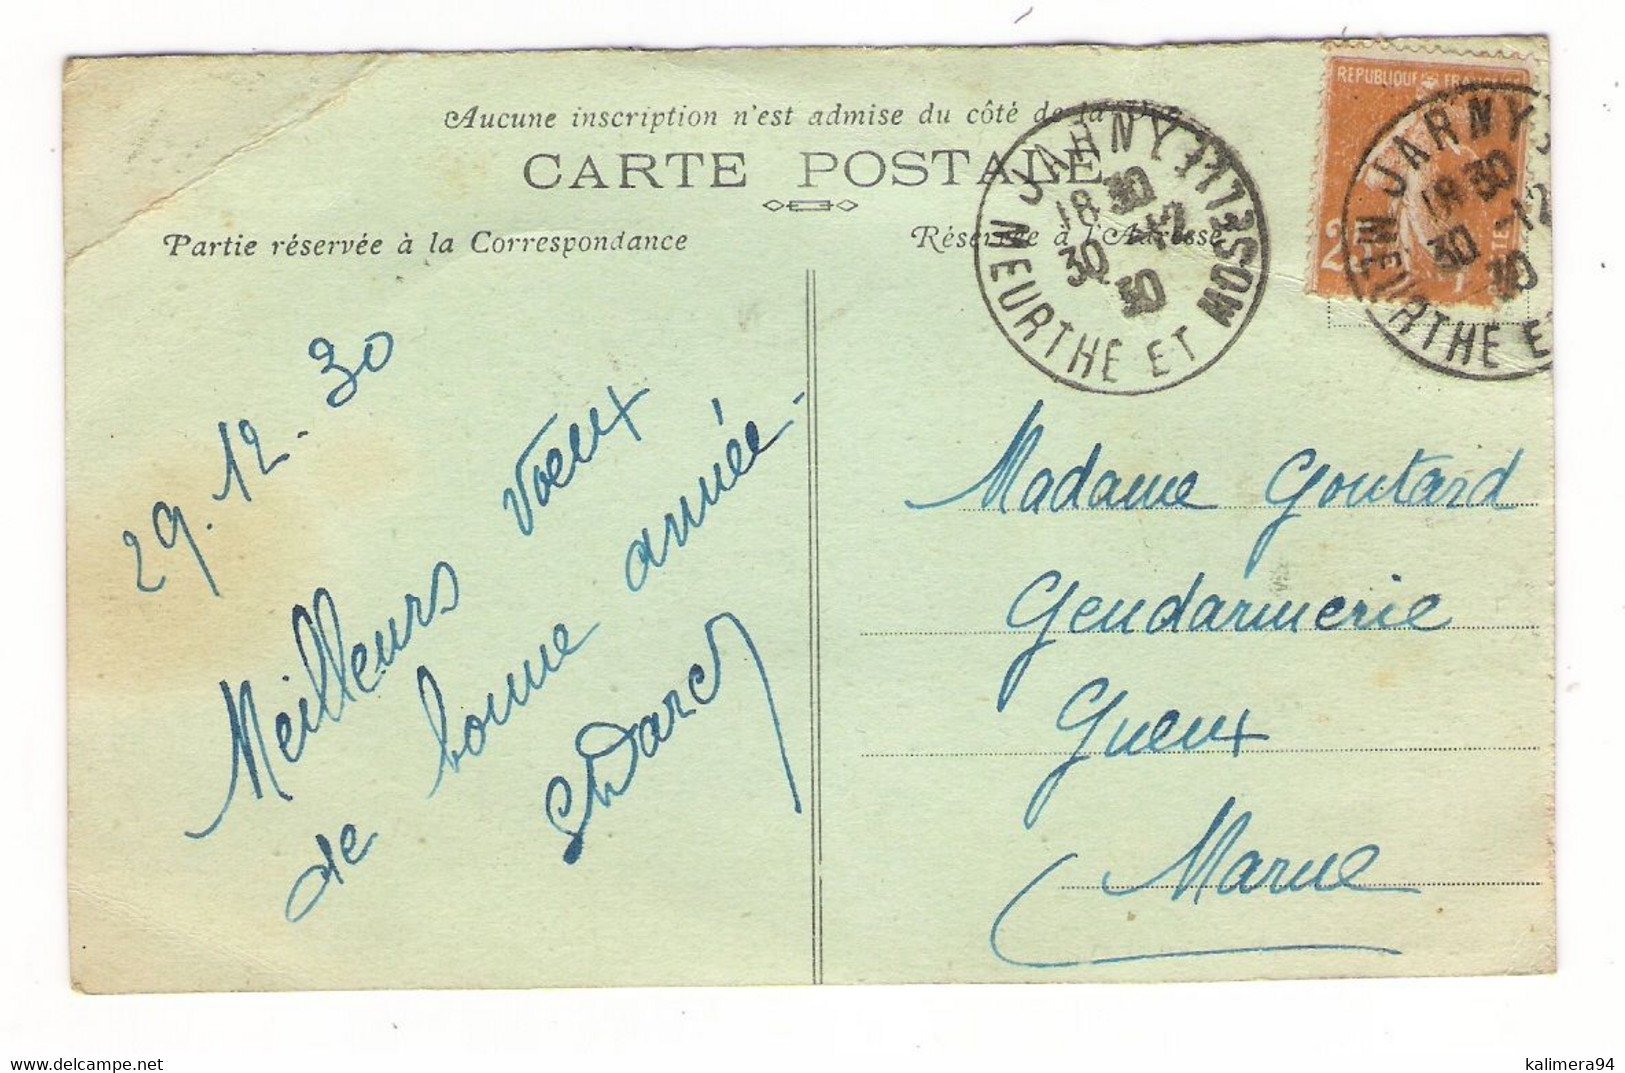 Aucune inscription n'est admise du côté de la
CARTE POSTALE
Partie réservée à la Correspondance
Réservée à l'Adresse
REPUBLIQUE FRANÇAISE
JARNY
18 30
30 -12
30
MEURTHE ET MOSELLE
JARNY
18 30
30 -12
30
MEURTHE E
29.12.30
Meilleurs vœux
de bonne année-
Madame Goutard
Gendarmerie
Gueux
Marne
kalimera94